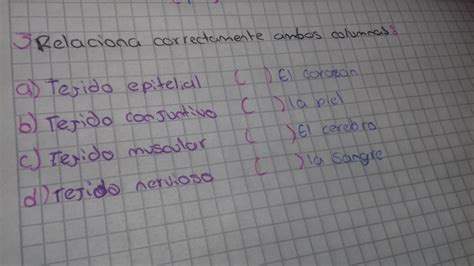 3 Relaciona correctamente ambas columnas:
a) Tejido epitelial ( ) El corazon
b) Tejido conjuntivo ( ) la piel
c) Tejido muscular ( ) El cerebro
d) Tejido nervioso ( ) la sangre